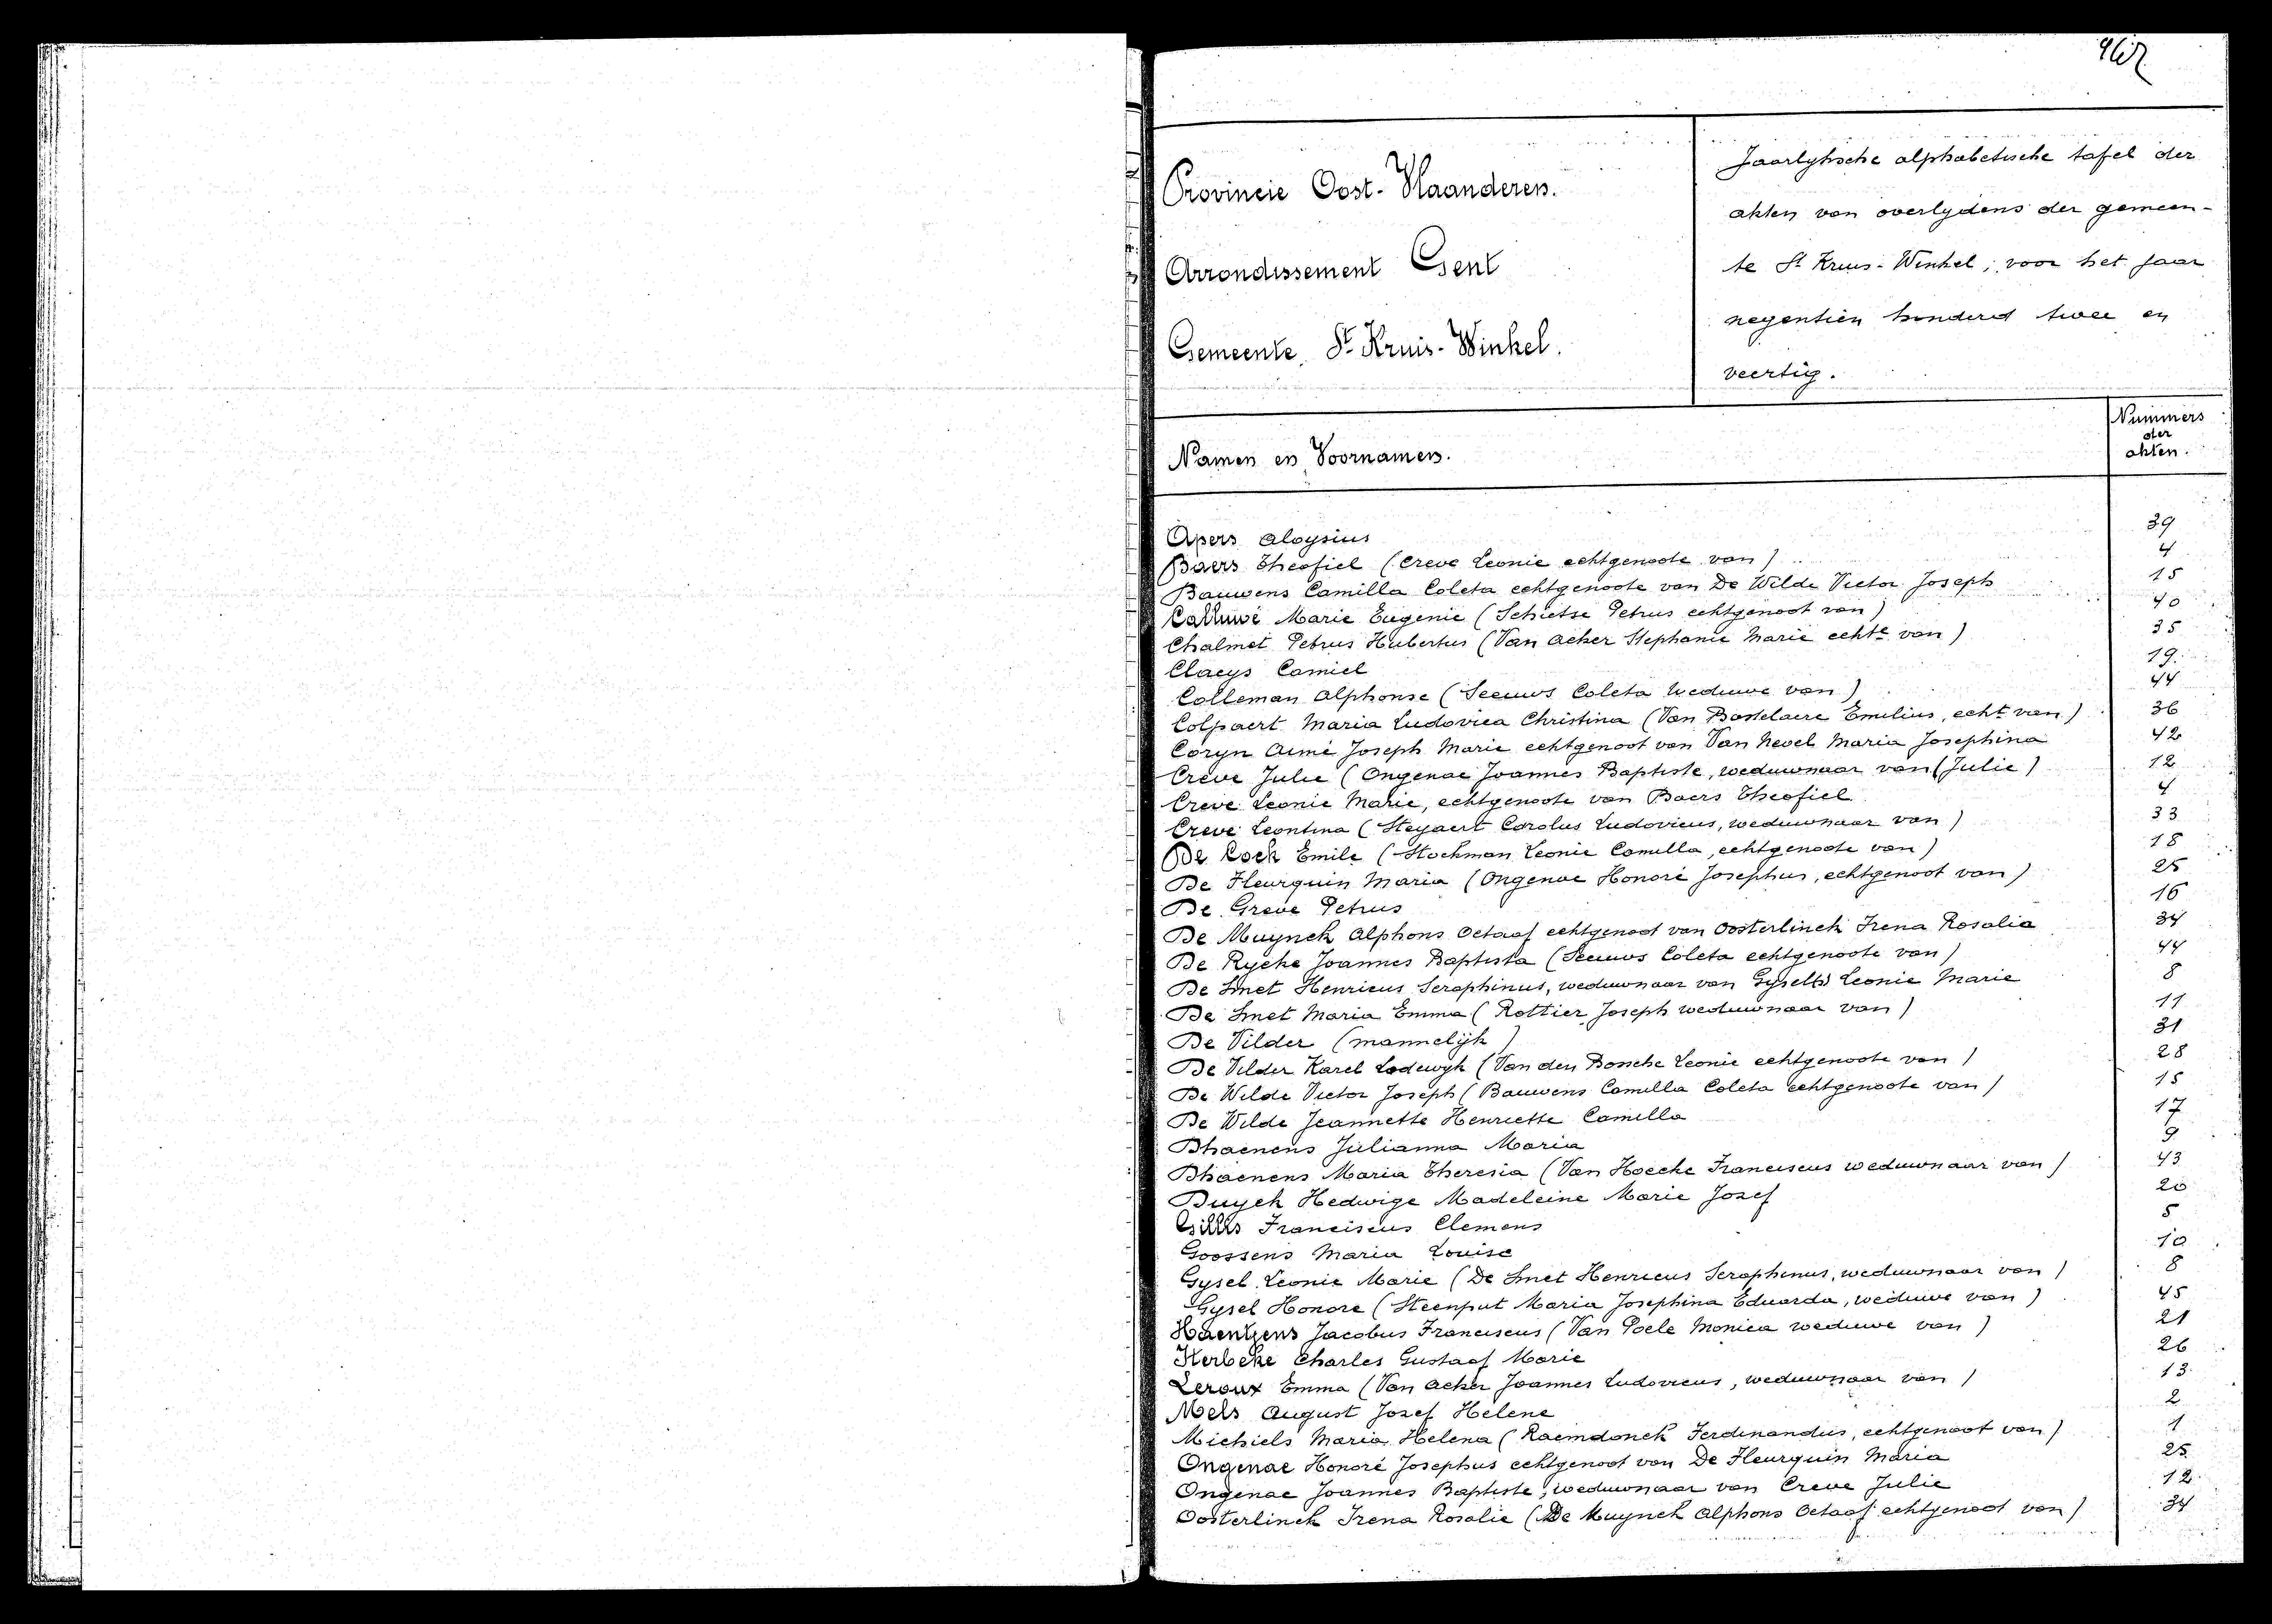 Provincie Oost-Vlaanderen.
Arrondissement Gent
Gemeente St Kruis-Winkel.
Jaarlyksche alphabetische tafel der
akten van overlydens der gemeen-
te St Kruis-Winkel, voor het jaar
negentien honderd twee en
veertig.
Namen en Voornamen. Nummers der akten.
Apers Aloysius 39
Baers Theofiel (Creve Leonie echtgenoote van) 4
Bauwens Camilla Coleta echtgenoote van De Wilde Victor Joseph 15
Calluwé Marie Eugenie (Schietse Petrus echtgenoot van) 40
Chalmet Petrus Hubertus (Van Acker Stephanie Marie echte van) 35
Claeys Camiel 19
Colleman Alphonse (Seeuws Coleta weduwe van) 44
Colpaert Maria Ludovica Christina (Van Bastelaere Emilius, echt van) 36
Coryn Aimé Joseph Marie echtgenoot van Van Hevel Maria Josephina 42
Creve Julie (Ongenae Joannes Baptiste, weduwnaar van (Julie) 12
Creve Leonie Marie, echtgenoote van Baers Theofiel 4
Creve Leontina (Steyaert Carolus Ludovicus, weduwnaar van) 33
De Cock Emile (Stockman Leonie Camilla, echtgenoote van) 18
De Fleurquin Maria (Ongenae Honoré Josephus, echtgenoot van) 25
De Greve Petrus 16
De Muynck Alphons Octaaf echtgenoot van Oosterlinck Irena Rosalia 34
De Rycke Joannes Baptista (Seeuws Coleta echtgenoote van) 44
De Smet Henricus Seraphinus, weduwnaar van Gysel Leonie Marie 8
De Smet Maria Emma (Rottier Joseph weduwnaar van) 11
De Vilder (mannelijk) 31
De Vilder Karel Lodewyk (Van den Bossche Leonie echtgenoote van) 28
De Wilde Victor Joseph (Bauwens Camilla Coleta echtgenoote van) 15
De Wilde Jeannette Henriette Camilla 17
Dhaenens Julianna Maria 9
Dhaenens Maria Theresia (Van Hoecke Franciscus weduwnaar van) 43
Duyck Hedwige Madeleine Marie Jozef 20
Gillis Franciscus Clemens 5
Goossens Maria Louise 10
Gysel Leonie Marie (De Smet Henricus Seraphinus, weduwnaar van) 8
Gysel Honore (Steenput Maria Josephina Eduarda, weduwe van) 45
Haentjens Jacobus Franciscus (Van Poele Monica weduwe van) 21
Herbeke Charles Gustaaf Marie 26
Leroux Emma (Van Acker Joannes Ludovicus, weduwnaar van) 13
Mels August Jozef Helene 2
Michiels Maria Helena (Raemdonck Ferdinandus, echtgenoot van) 1
Ongenae Honoré Josephus echtgenoot van De Fleurquin Maria 25
Ongenae Joannes Baptiste, weduwnaar van Creve Julie 12
Oosterlinck Irena Rosalie (De Muynck Alphons Octaaf echtgenoot van) 34